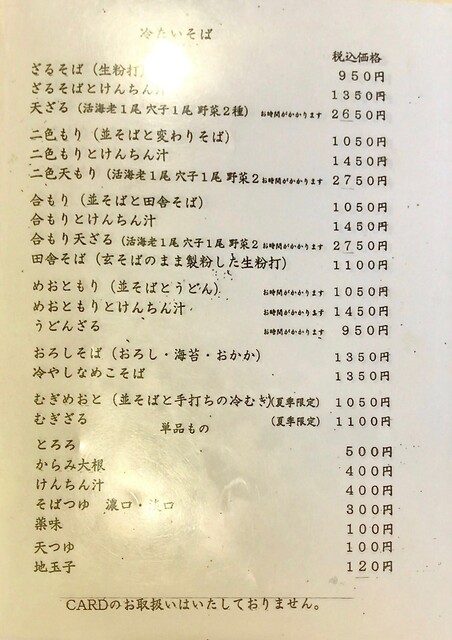 冷たいそば
税込価格
ざるそば（生粉打 950円
ざるそばとけんちん汁 1350円
天ざる（活海老1尾 穴子1尾 野菜2種） お時間がかかります 2650円
二色もり（並そばと変わりそば） 1050円
二色もりとけんちん汁 1450円
二色天もり（活海老1尾 穴子1尾 野菜2 お時間がかかります 2750円
合もり（並そばと田舎そば） 1050円
合もりとけんちん汁 1450円
合もり天ざる（活海老1尾 穴子1尾 野菜2 お時間がかかります 2750円
田舎そば（玄そばのまま製粉した生粉打） 1100円
めおともり（並そばとうどん） お時間がかかります 1050円
めおともりとけんちん汁 お時間がかかります 1450円
うどんざる お時間がかかります 950円
おろしそば（おろし・海苔・おかか） 1350円
冷やしなめこそば 1350円
むぎめおと（並そばと手打ちの冷むぎ）（夏季限定） 1050円
むぎざる （夏季限定） 1100円
単品もの
とろろ 500円
からみ大根 400円
けんちん汁 400円
そばつゆ 濃口・ 口 300円
薬味 100円
天つゆ 100円
地玉子 120円
CARDのお取扱いはいたしておりません。